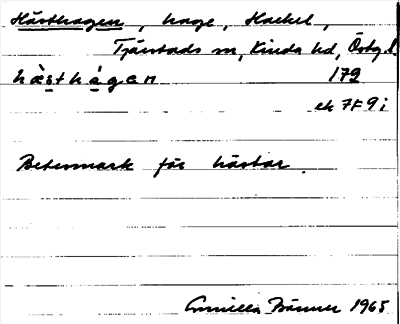 Hästhagen, hage, Hackel,
Tjärstads sn, Kinda hd, Östg. l.
hæ̀sthágen 179
ek 7F9i
Betesmark för hästar.
1965